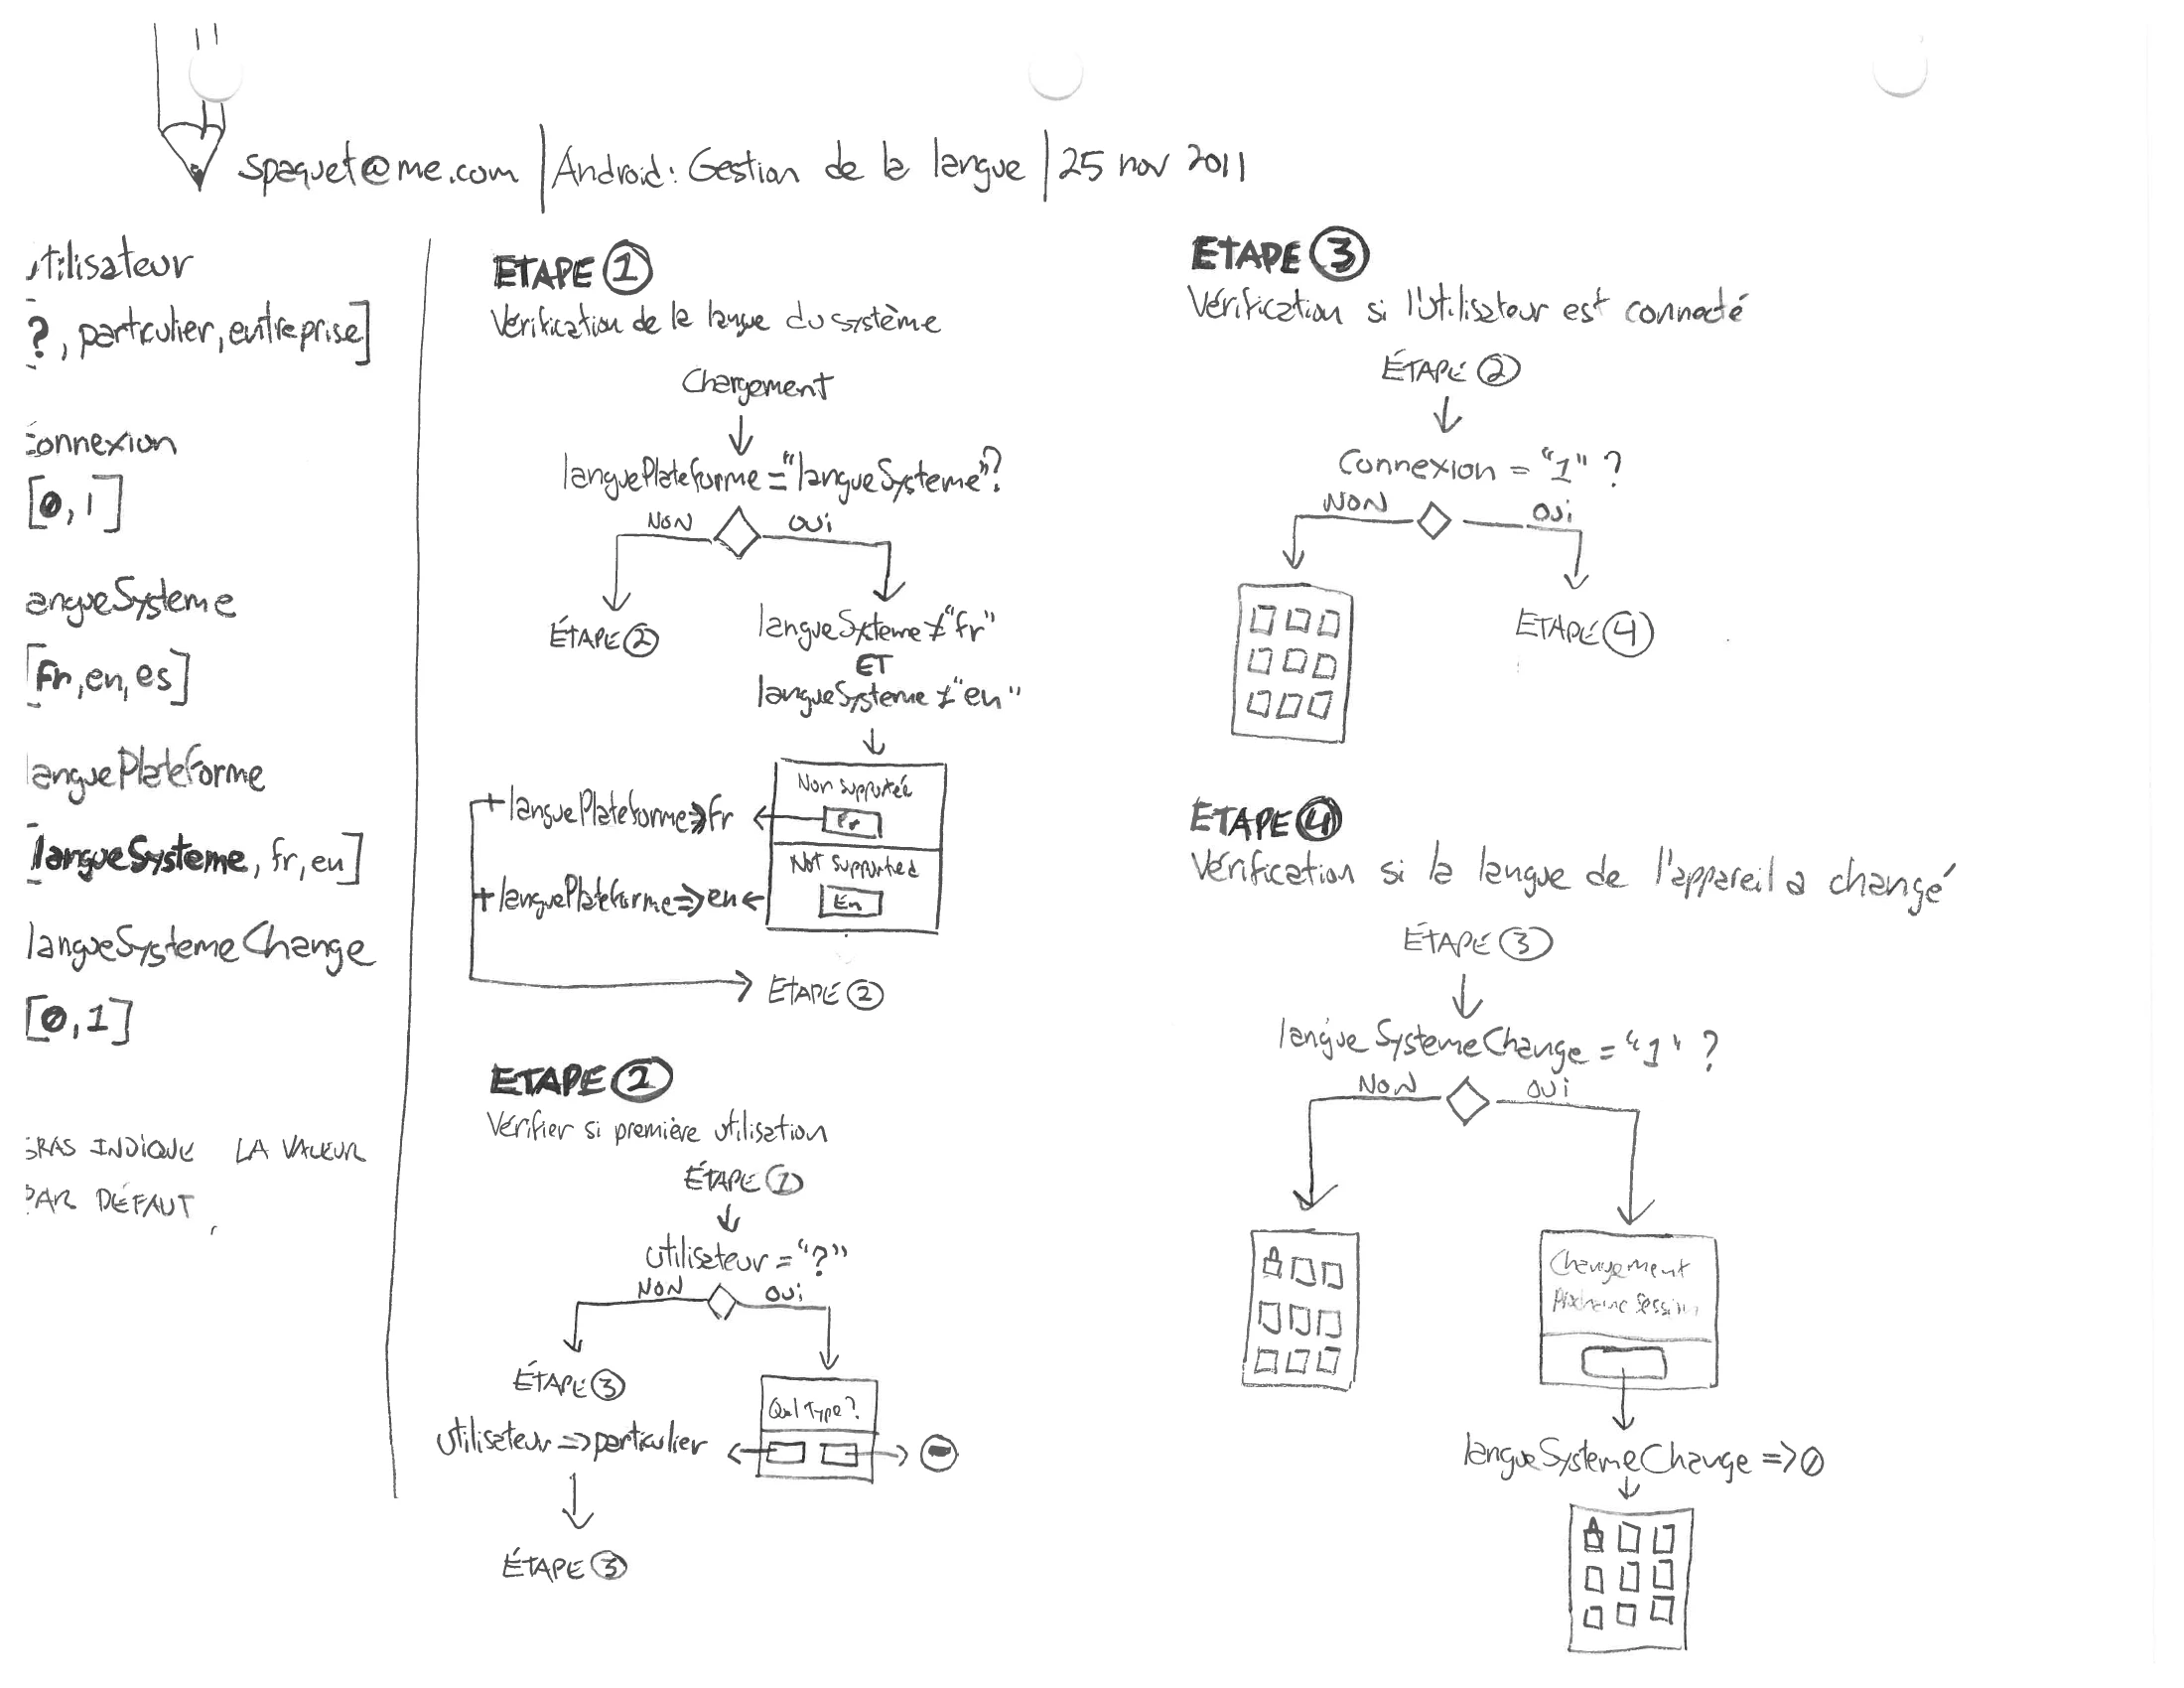 spaquet@me.com | Android: Gestion de la langue | 25 nov 2011
utilisateur
[?, particulier, entreprise]
connexion
[0, 1]
langueSysteme
[fr, en, es]
languePlateforme
[langueSysteme, fr, en]
langueSystemeChange
[0, 1]
GRAS INDIQUE LA VALEUR
PAR DÉFAUT
ETAPE 1
Vérification de la langue du système
Chargement
languePlateforme = "langueSysteme"?
NON OUI
ÉTAPE 2
langueSysteme ≠ "fr"
ET
langueSysteme ≠ "en"
Non supportée
+ languePlateforme => fr
Fr
Not supported
+ languePlateforme => en
En
ETAPE 2
ETAPE 2
Vérifier si première utilisation
ÉTAPE 1
utilisateur = "?"
NON OUI
ÉTAPE 3
Quel type?
utilisateur => particulier
ÉTAPE 3
ETAPE 3
Vérification si l'utilisateur est connecté
ÉTAPE 2
Connexion = "1" ?
NON OUI
ETAPE 4
ETAPE 4
Vérification si la langue de l'appareil a changé
ÉTAPE 3
langueSystemeChange = "1" ?
NON OUI
Changement
session
langueSystemeChange => 0